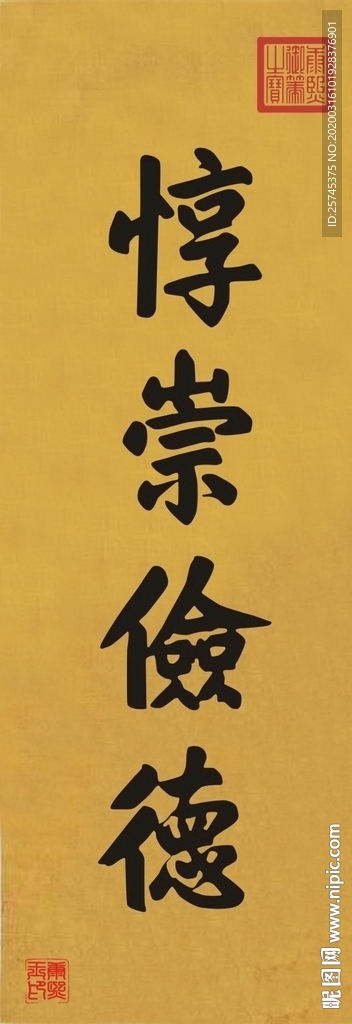 惇崇儉德
康熙御筆之寶
ID:25745375 NO:20200316101928376901
昵图网 www.nipic.com